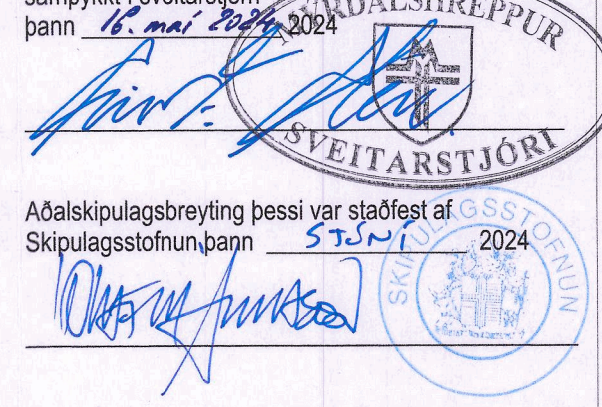 samþykkt í sveitarstjórn
þann 16. maí 2024 2024
MÝRDALSHREPPUR
SVEITARSTJÓRI
Aðalskipulagsbreyting þessi var staðfest af
Skipulagsstofnun þann 5 JÚNÍ 2024
SKIPULAGSSTOFNUN